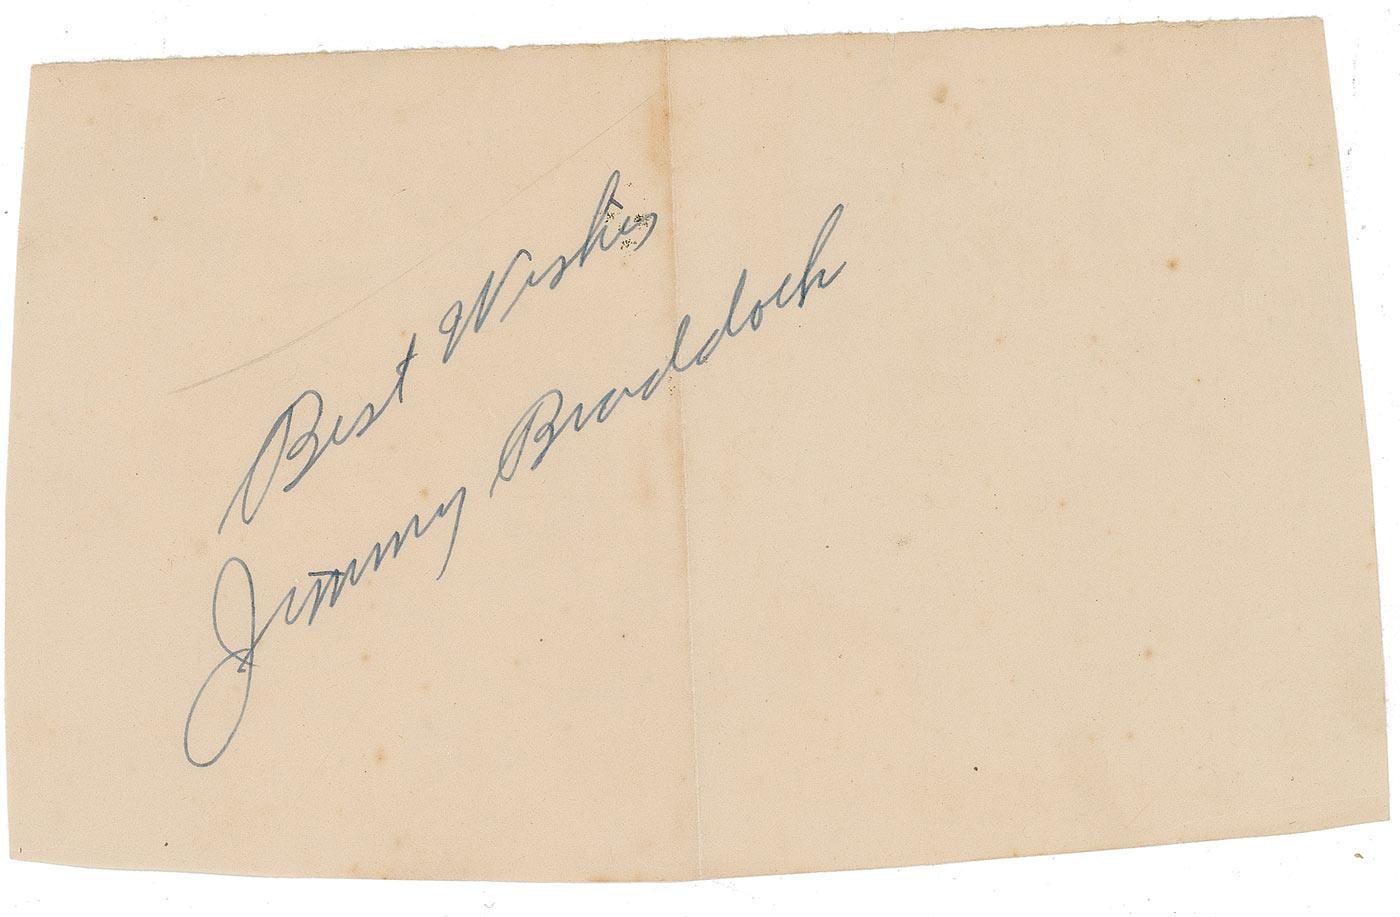 Best Wishes
Jimmy Braddock